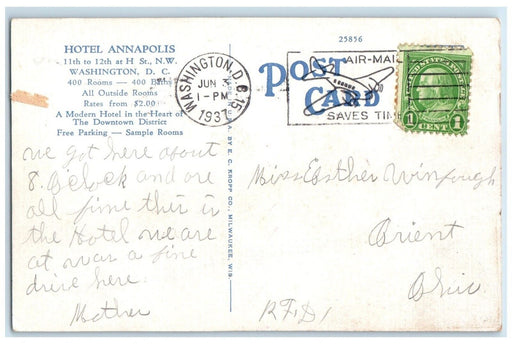 HOTEL ANNAPOLIS
11th to 12th at H St., N.W.
WASHINGTON, D. C.
400 Rooms — 400 Baths
All Outside Rooms
Rates from $2.00
A Modern Hotel in the Heart of
The Downtown District
Free Parking — Sample Rooms
we got here about
8. O'clock and are
all fine this is
the Hotel we are
at was a fine
drive here.
Mother
E. C. KROPP CO., MILWAUKEE, WIS.
25856
POST CARD
WASHINGTON, D.C. 15
JUN
1-PM
1937
AIR-MAIL
SAVES TIME
1 CENT 1
Miss Esther Winfough
Orient
Ohio.
R.F.D 1